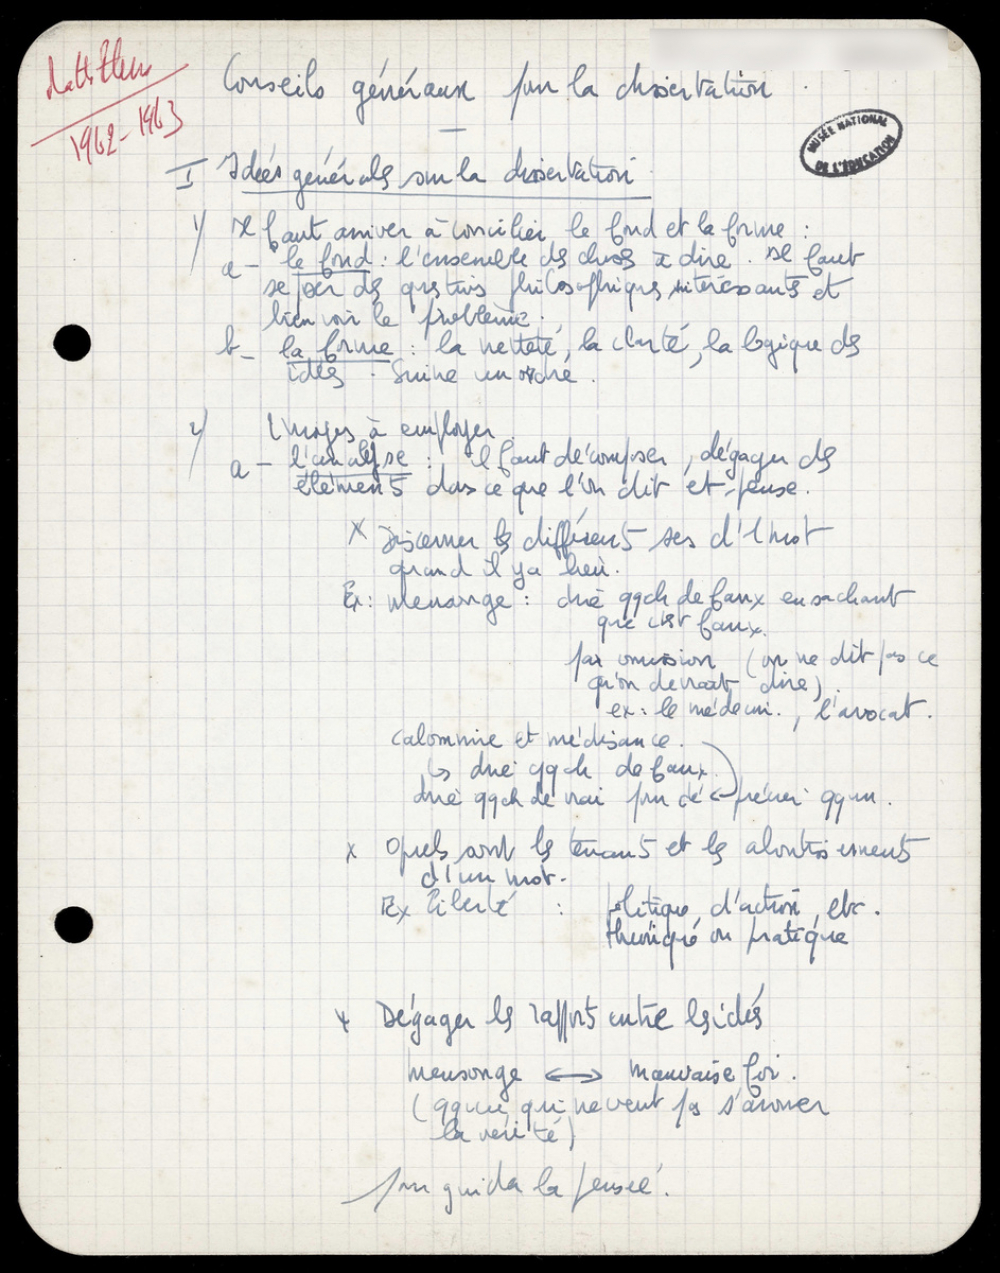 Math Elem
1962-1963
Conseils généraux pour la dissertation
MUSÉE NATIONAL
DE L'ÉDUCATION
I Idées générales sur la dissertation
1/ Il faut arriver à concilier le fond et la forme :
a- le fond : l'ensemble des choses à dire. Il faut
se poser des questions philosophiques intéressants et
bien voir le problème.
b- la forme : la netteté, la clarté, la logique des
idées. Suivre un ordre.
2/ à employer
a- l'analyse : il faut décomposer, dégager des
éléments dans ce que l'on dit et pense.
x Discerner les différents sens d'1 mot
quand il y a lieu.
Ex: mensonge : dire qqch de faux en sachant
que c'est faux.
par omission (on ne dit pas ce
qu'on devrait dire).
ex: le médecin, l'avocat.
calomnie et médisance.
↳ dire qqch de faux.
dire qqch de vrai pour dé ← précier qqun.
x Quels sont les tenants et les aboutissements
d'un mot.
Ex Liberté : politique, d'action, etc.
théorique ou pratique
x Dégager les rapports entre les idées
mensonge ↔ mauvaise foi.
(qqun qui ne veut pas s'avouer
la vérité)
pour guider la pensée.